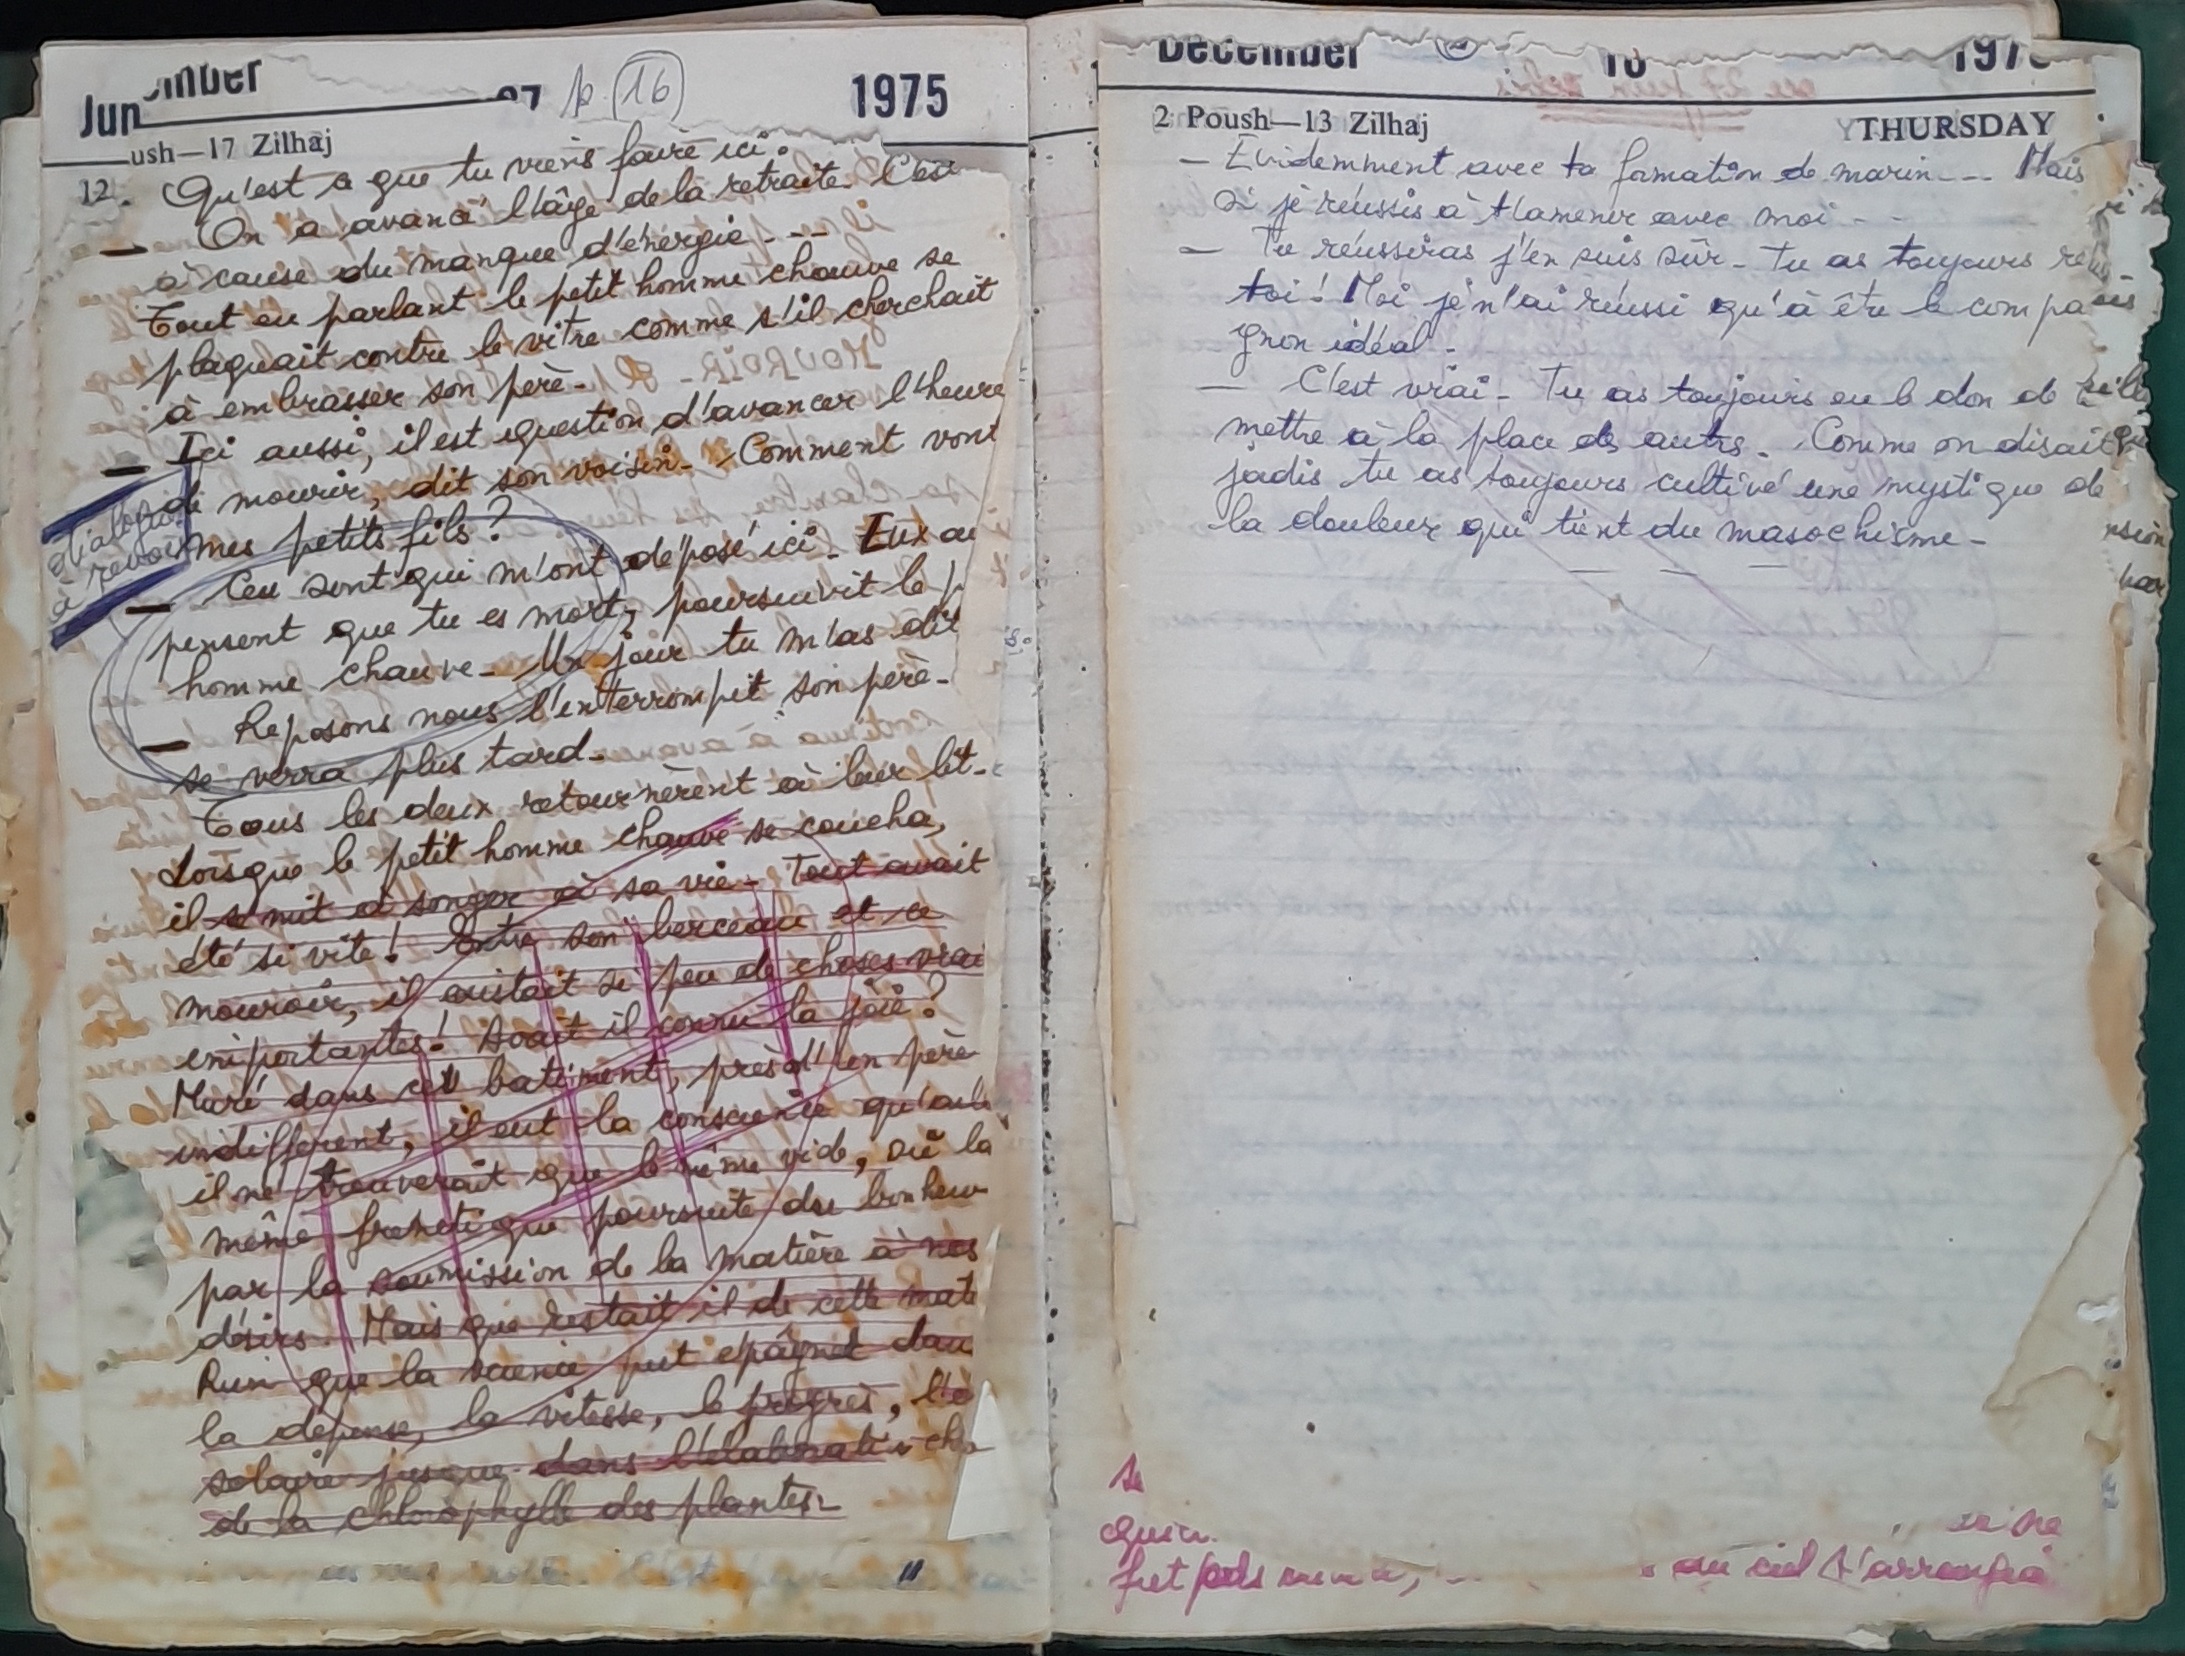 Jun
ember
27
p. 16
1975
ush—17 Zilhaj
12. Qu'est ce que tu viens faire ici.
— On a avancé l'âge de la retraite. C'est
à cause du manque d'énergie - - -
Tout en parlant le petit homme chauve se
plaquait contre la vitre comme s'il cherchait
à embrasser son père-
— Ici aussi, il est question d'avancer l'heure
de mourir, dit son voisin. Comment vont
mes petits fils?
dialogue
à revoir
— Ceu sont qui m'ont déposé ici. Eux au
pensent que tu es mort, poursuivit le p
homme chauve - Un jour tu m'as dit
— Reposons nous l'interrompit son père-
se verra plus tard-
Tous les deux retournèrent à leur lit-
Lorsque le petit homme chauve se coucha,
il se mit à songer à sa vie - Tout avait
été si vite! Entre son berceau et ce
mouroir, il existait si peu de choses vrai
importantes! Avait il connu la joie?
Muré dans cet batiment, près d'un père
indifferent, il eut la conscience qu'ail
il ne trouverait que le même vide, où la
même frenetique poursuite du bonheur
par la soumission de la matière à nos
désirs. Mais que restait il de cette mate
Rien que la science put epâgnet dan
la depense, la vitesse, le progrès, l'é
solaire jusque dans l'élaborati
de la chlorophylle des plantes-
11
December
18
197
2 Poush—13 Zilhaj
THURSDAY
— Evidemment avec ta formation de marin - - - Mais
si je réussis à t'amener avec moi - -
— Tu réussiras j'en suis sûr - Tu as toujours réus
toi! Moi je n'ai réussi qu'à être le compa
gnon idéal -
— C'est vrai - Tu as toujours eu le don de te
mettre à la place des autres - Comme on disait
jadis tu as toujours cultivé une mystique de
la douleur qui tient du masochisme -
— — —
se
fut pas
au ciel s'arrangea